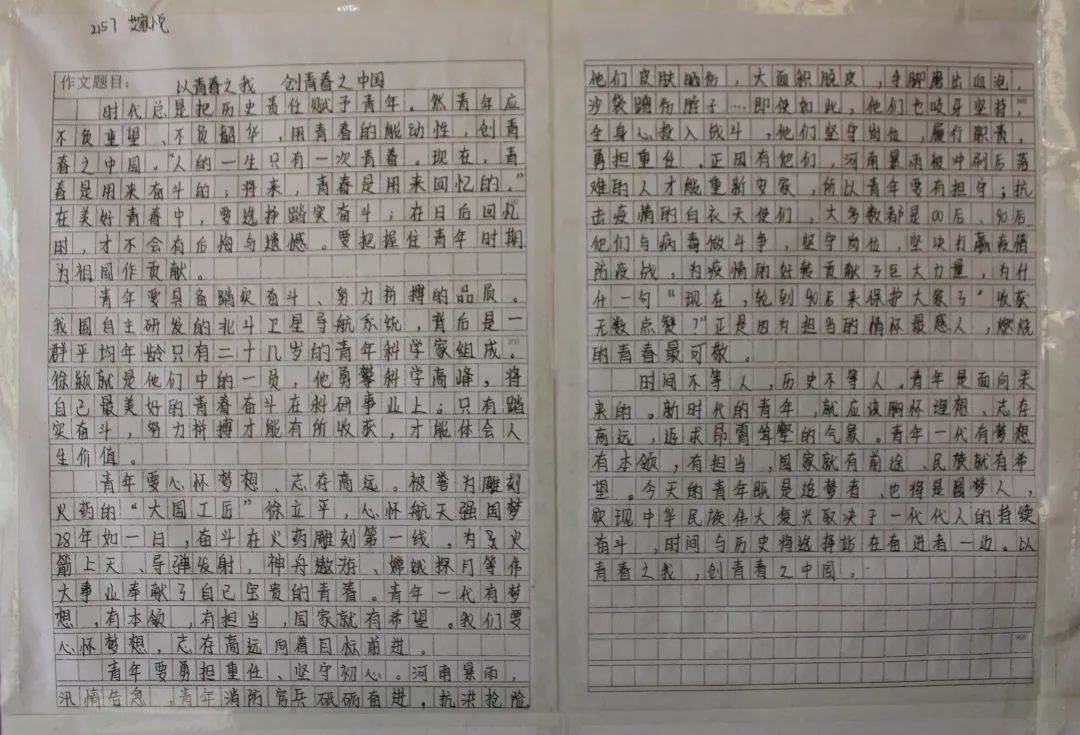 2157 艾家悦
作文题目：
以青春之我 创青春之中国
时代总是把历史责任赋予青年。然青年应
不负重望、不负韶华，用青春的能动性，创青
春之中国。“人的一生只有一次青春。现在，青
春是用来奋斗的；将来，青春是用来回忆的。”
在美好青春中，要选择踏实奋斗；在日后回忆
时，才不会有后悔与遗憾。要把握住青年时期
为祖国作贡献。
青年要具备踏实奋斗、努力拼搏的品质。
我国自主研发的北斗卫星导航系统，背后是一
群平均年龄只有二十几岁的青年科学家组成。
徐颖就是他们中的一员，他勇攀科学高峰，将
自己最美好的青春奋斗在科研事业上。只有踏
实奋斗，努力拼搏才能有所收获，才能体会人
生价值。
青年要心怀梦想、志存高远。被誉为雕刻
火药的“大国工匠”徐立平，心怀航天强国梦
28年如一日，奋斗在火药雕刻第一线，为了火
箭上天、导弹发射，神舟遨游、嫦娥探月等伟
大事业奉献了自己宝贵的青春。青年一代有梦
想，有本领，有担当，国家就有希望。我们要
心怀梦想，志存高远向着目标前进。
青年要勇担重任、坚守初心。河南暴雨，
汛情告急，青年消防官兵砥砺奋进，抗洪抢险
他们皮肤晒伤，大面积脱皮，手脚磨出血泡，
沙袋蹭伤脖子…即使如此，他们也咬牙坚持，
全身心投入战斗，他们坚守岗位，履行职责，
勇担重任。正因有他们，河南暴雨被冲刷后落
难的人才能重新安家，所以青年要有担守；抗
击疫情的白衣天使们，大多数都是00后、90后
他们与病毒做斗争，坚守岗位，坚决打赢疫情
防疫战，为疫情的好转贡献了巨大力量，为什
什一句“现在，轮到90后来保护大家了”收获
无数点赞？”正是因为担当的情怀最感人，燃烧
的青春最可敬。
时间不等人，历史不等人。青年是面向未
来的。新时代的青年，就应该胸怀理想、志存
高远，追求昂霄耸壑的气象。青年一代有梦想
有本领，有担当，国家就有前途、民族就有希
望。今天的青年既是追梦者、也将是圆梦人，
实现中华民族伟大复兴取决于一代代人的持续
奋斗，时间与历史将选择站在奋进者一边。以
青春之我，创青春之中国。